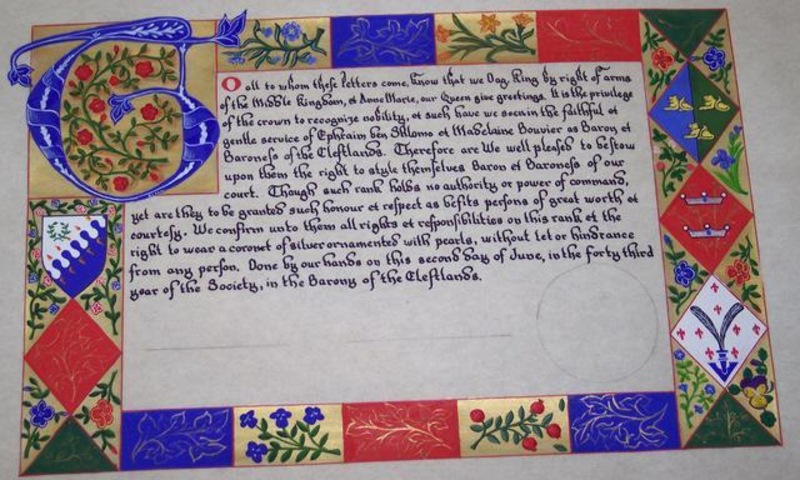 T
O all to whom these letters come, know that we Dag, King by right of arms
of the Middle Kingdom, et AnneMarie, our Queen give greetings. It is the privilege
of the crown to recognize nobility, et such have we seen in the faithful et
gentle service of Ephraim ben Shlomo et Madelaine Bouvier as Baron et
Baroness of the Cleftlands. Therefore are We well pleased to bestow
upon them the right to style themselves Baron et Baroness of our
court. Though such rank holds no authority or power of command,
yet are they to be granted such honour et respect as befits persons of great worth et
courtesy. We confirm unto them all rights et responsibilities on this rank et the
right to wear a coronet of silver ornamented with pearls, without let or hindrance
from any person. Done by our hands on this second day of June, in the forty third
year of the Society, in the Barony of the Cleftlands.